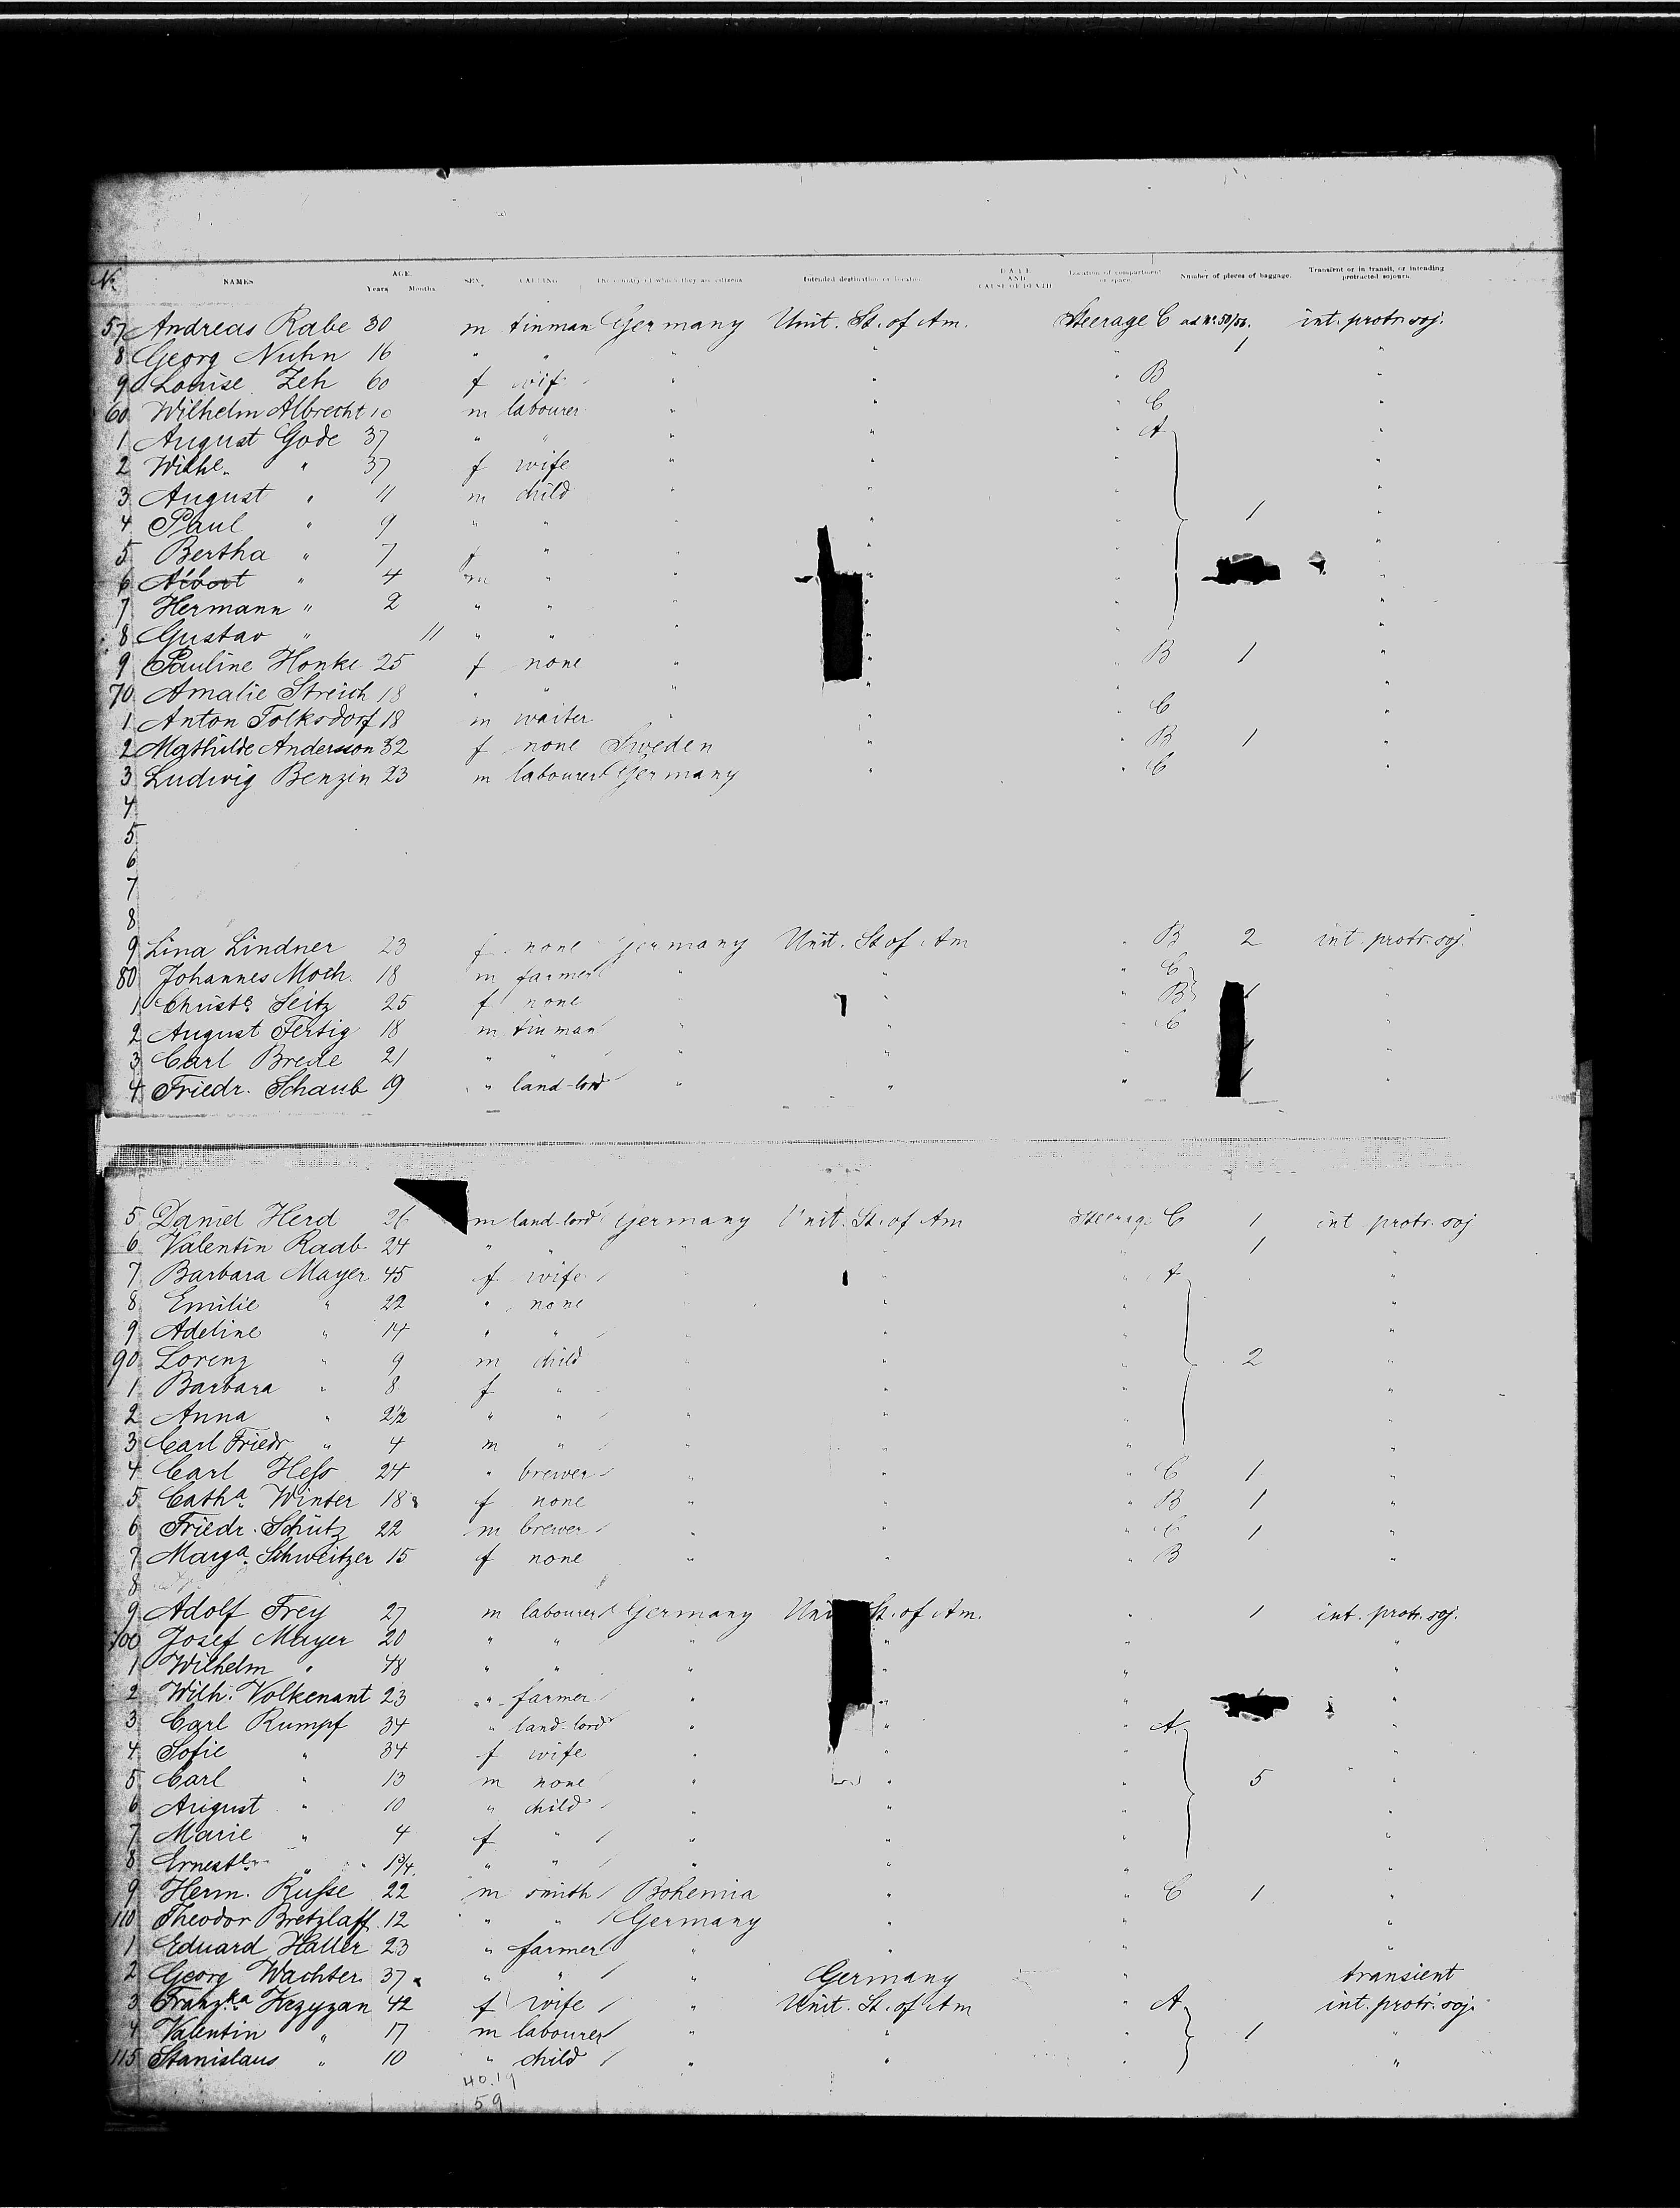 No. NAMES AGE Years Months SEX. CALLING The country of which they are citizens Intended destination or location DATE AND CAUSE OF DEATH Location of compartment or space Number of pieces of baggage. Transient or in transit, or intending protracted sojourn.
57 Andreas Rabe 30 m tinman Germany Unit. St. of Am. Steerage C ad No. 50/56. int. protr. soj.
8 Georg Nuhn 16 " " " " " 1 "
9 Louise Zeh 60 f wife " " " B "
60 Wilhelm Albrecht 10 m labourer " " " C "
1 August Gode 37 " " " " " A "
2 Wilhe. " 37 f wife " " " "
3 August " 11 m child " " " "
4 Paul " 9 " " " " " 1 "
5 Bertha " 7 f " " " " "
6 Albert " 4 m " " " " "
7 Hermann " 2 " " " " " "
8 Gustav " 11 " " " " " "
9 Pauline Honke 25 f none " " " B 1 "
70 Amalie Streich 18 " " " " "
1 Anton Tolksdorf 18 m waiter " " " C "
2 Mathilde Andersson 32 f none Sweden " " B 1 "
3 Ludwig Benzin 23 m labourer Germany " " C "
4
5
6
7
8
9 Lina Lindner 23 f none Germany Unit. St of Am " B 2 int. protr. soj.
80 Johannes Moch. 18 m farmer " " " C "
1 Christe. Seitz 25 f none " " " B 1 "
2 August Fertig 18 m tinman " " " C "
3 Carl Brede 21 " " " " " 1 "
4 Friedr. Schaub 19 " land-lord " " " 1 "
5 Daniel Herd 26 m land-lord Germany Unit. St. of Am Steerage C 1 int protr. soj.
6 Valentin Raab 24 " " " " " 1 "
7 Barbara Mayer 45 f wife " " " A "
8 Emilie " 22 " none " " " "
9 Adeline " 14 " " " " " "
90 Lorenz " 9 m child " " " 2 "
1 Barbara " 8 f " " " " "
2 Anna " 2 1/2 " " " " " "
3 Carl Friedr " 4 m " " " " "
4 Carl Heß 24 " brewer " " " C 1 "
5 Catha. Winter 18 f none " " " B 1 "
6 Friedr. Schütz 22 m brewer " " " C 1 "
7 Marga. Schweitzer 15 f none " " " B "
8
9 Adolf Frey 27 m labourer Germany Unit. St. of Am. " 1 int. protr. soj.
100 Josef Mayer 20 " " " " " "
1 Wilhelm " 48 " " " " " "
2 Wilh. Volkenant 23 " farmer " " " "
3 Carl Rumpf 34 " land-lord " " " A. "
4 Sofie " 34 f wife " " " "
5 Carl " 13 m none " " " 5 "
6 August " 10 " child " " " "
7 Marie " 4 f " " " " "
8 Erneste. " 1 3/4 " " " " " "
9 Herm. Ruße 22 m smith Bohemia " " C 1 "
110 Theodor Bretzlaff 12 " " Germany " " "
1 Eduard Haller 23 " farmer " " " "
2 Georg Wachter 37 " " " Germany " transient
3 Franzka. Krzyzan 42 f wife " Unit. St. of Am " A int. protr. soj.
4 Valentin " 17 m labourer " " " 1 "
115 Stanislaus " 10 " child " " " "
40.19
59